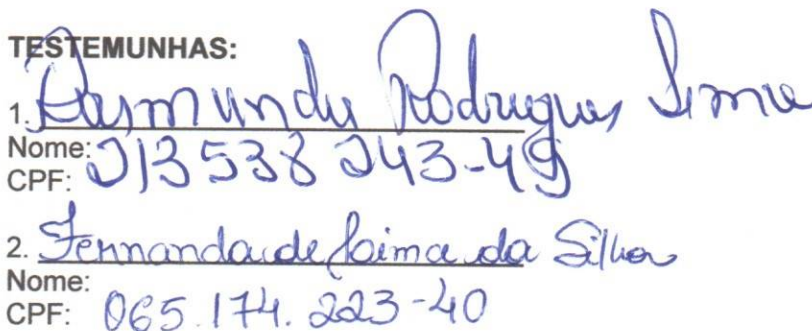 TESTEMUNHAS:
1. Raimundo Rodrigues Lima
Nome:
CPF: 213 538 243-49
2. Fernanda de Lima da Silva
Nome:
CPF: 065.174.223-40